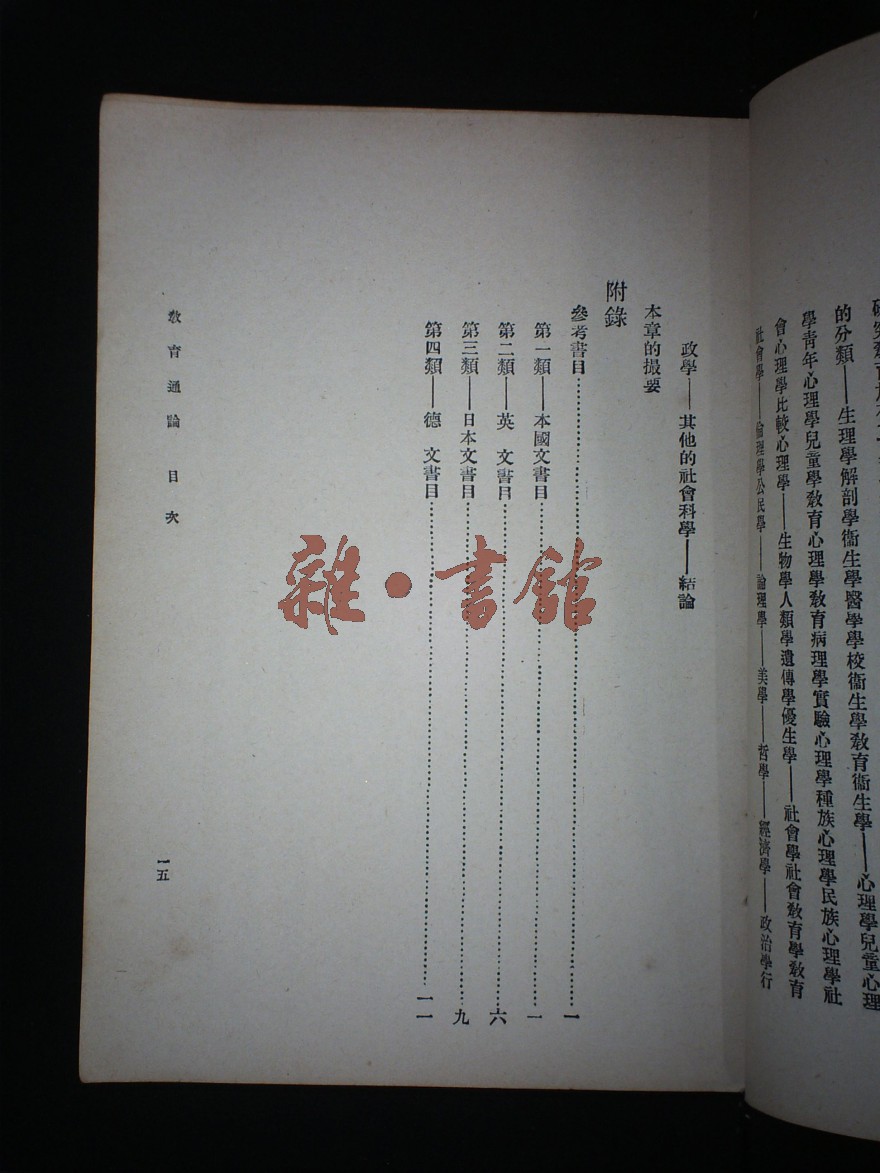 的分類——生理學解剖學衞生學醫學學校衞生學教育衞生學——心理學兒童心理
學青年心理學兒童學教育心理學教育病理學實驗心理學種族心理學民族心理學社
會心理學比較心理學——生物學人類學遺傳學優生學——社會學社會教育學教育
社會學——倫理學公民學——論理學——美學——哲學——經濟學——政治學行
政學——其他的社會科學——結論
本章的撮要
附錄
參考書目……一
第一類——本國文書目……一
第二類——英 文書目……六
第三類——日本文書目……九
第四類——德 文書目……一一
教育通論 目次
一五
雜·書館